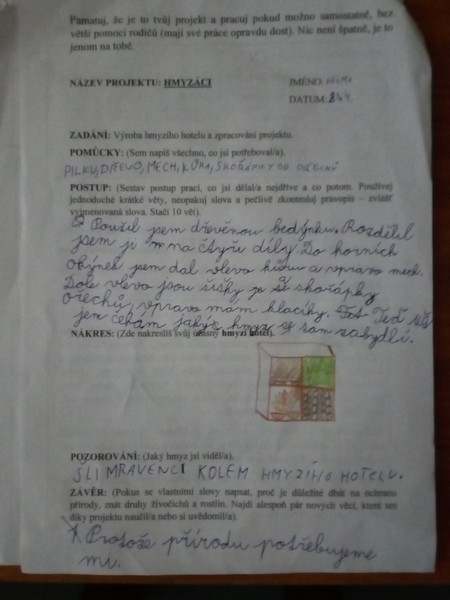 Pamatuj, že je to tvůj projekt a pracuj pokud možno samostatně, bez
větší pomoci rodičů (mají své práce opravdu dost). Nic není špatně, je to
jenom na tobě.
NÁZEV PROJEKTU: HMYZÁCI JMÉNO:
DATUM:
ZADÁNÍ: Výroba hmyzího hotelu a zpracování projektu.
POMŮCKY: (Sem napiš všechno, co jsi potřeboval/a).
PILKU, DŘEVO, MECH, KŮRA, SKOŘÁPKY OD OŘECHŮ
POSTUP: (Sestav postup prací, co jsi dělal/a nejdříve a co potom. Používej
jednoduché krátké věty, neopakuj slova a pečlivě zkontroluj pravopis – zvlášť
vyjmenovaná slova. Stačí 10 vět).
Použil jsem dřevěnou bedýnku. Rozdělil
jsem ji na čtyři díly. Do horních
okýnek jsem dal vleva kůru a vpravo mech.
Dole vleva jsou šišky a skořápky
ořechů, vpravo mám klacíky. Teď už
jen čekám jaký hmyz se tam zabydlí.
NÁKRES: (Zde nakreslíš svůj úžasný hmyzí hotel).
POZOROVÁNÍ: (Jaký hmyz jsi viděl/a).
ŠLI MRAVENCI KOLEM HMYZÍHO HOTELU.
ZÁVĚR: (Pokus se vlastními slovy napsat, proč je důležité dbát na ochranu
přírody, znát druhy živočichů a rostlin. Najdi alespoň pár nových věcí, které ses
díky projektu naučil/a nebo si uvědomil/a).
Protože přírodu potřebujeme
mi.